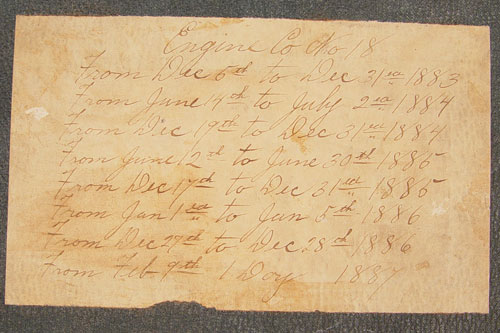 Engine Co No 18
From Dec 6th to Dec 31st 1883
From June 14th to July 2nd 1884
From Dec 19th to Dec 31st 1884
From June 12th to June 30th 1885
From Dec 17th to Dec 31st 1885
From Jan 1st to Jan 5th 1886
From Dec 27th to Dec 28th 1886
From Feb 9th 1 Day 1887